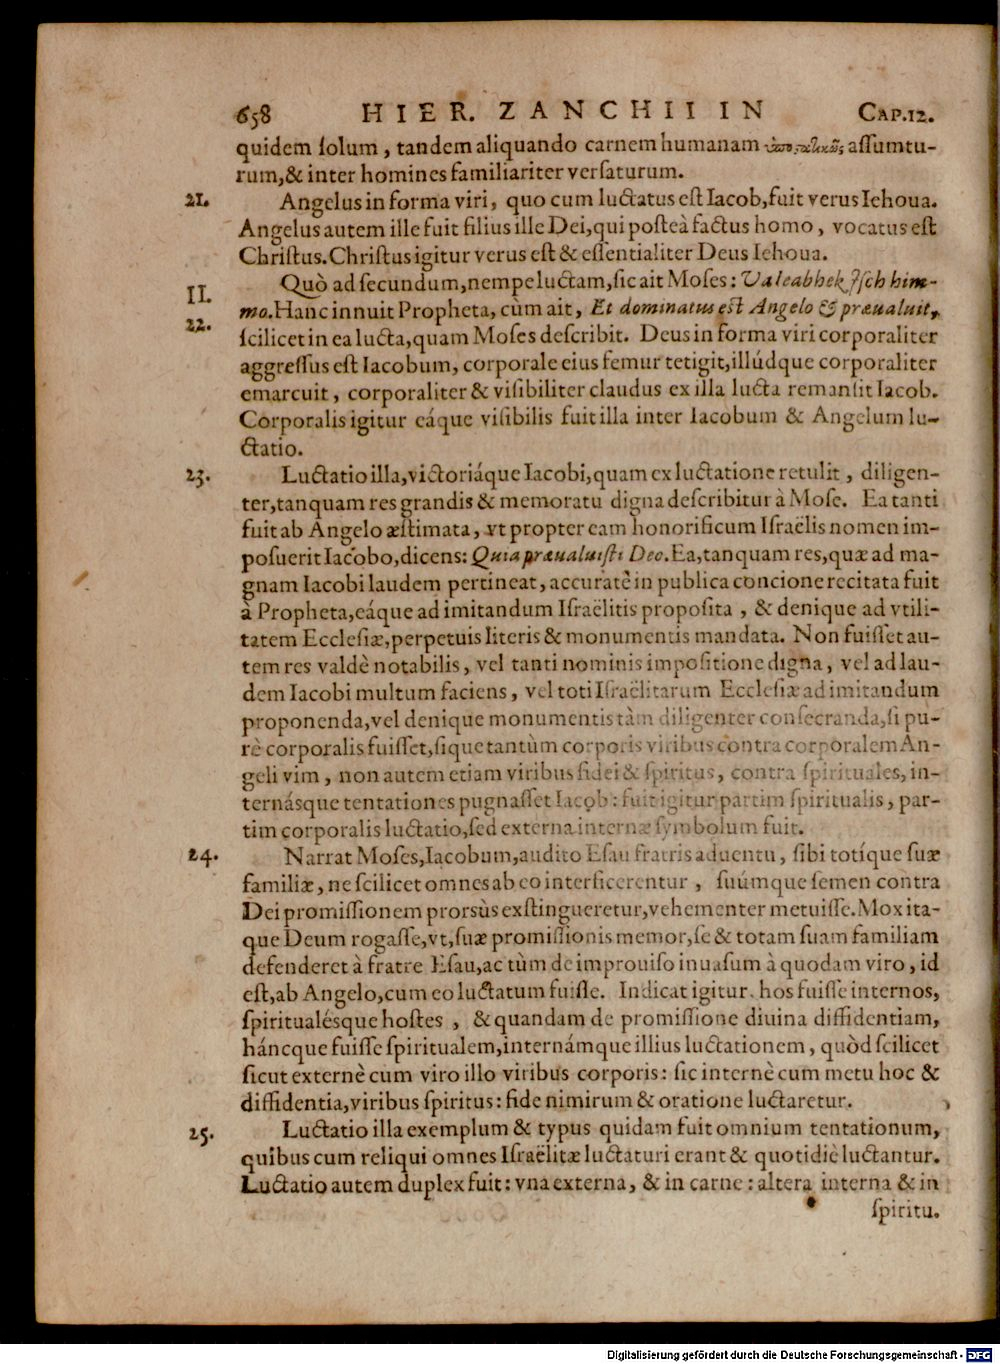 658 HIER. ZANCHII IN CAP.12.
quidem ſolum, tandem aliquando carnem humanam aſſumtu-
rum, & inter homines familiariter verſaturum.
21. Angelus in forma viri, quo cum luctatus eſt Iacob, fuit verus Iehoua.
Angelus autem ille fuit filius ille Dei, qui poſteà factus homo, vocatus eſt
Chriſtus. Chriſtus igitur verus eſt & eſſentialiter Deus Iehoua.
II. Quò ad ſecundum, nempe luctam, ſic ait Moſes: Vaieabhek Jſch him-
mo. Hanc innuit Propheta, cùm ait, Et dominatus eſt Angelo & præualuit,
22. ſcilicet in ea lucta, quam Moſes deſcribit. Deus in forma viri corporaliter
aggreſſus eſt Iacobum, corporale eius femur tetigit, illúdque corporaliter
emarcuit, corporaliter & viſibiliter claudus ex illa lucta remanſit Iacob.
Corporalis igitur eáque viſibilis fuit illa inter Iacobum & Angelum lu-
ctatio.
23. Luctatio illa, victoriáque Iacobi, quam ex luctatione retulit, diligen-
ter, tanquam res grandis & memoratu digna deſcribitur à Moſe. Ea tanti
fuit ab Angelo æſtimata, vt propter eam honorificum Iſraëlis nomen im-
poſuerit Iacobo, dicens: Quia præualuiſti Deo. Ea, tanquam res, quæ ad ma-
gnam Iacobi laudem pertineat, accuratè in publica concione recitata fuit
à Propheta, eáque ad imitandum Iſraëlitis propoſita, & denique ad vtili-
tatem Eccleſiæ, perpetuis literis & monumentis mandata. Non fuiſſet au-
tem res valdè notabilis, vel tanti nominis impoſitione digna, vel ad lau-
dem Iacobi multum faciens, vel toti Iſraëlitarum Eccleſiæ ad imitandum
proponenda, vel denique monumentis tàm diligenter conſecranda, ſi pu-
rè corporalis fuiſſet, ſique tantùm corporis viribus contra corporalem An-
geli vim, non autem etiam viribus fidei & ſpiritus, contra ſpirituales, in-
ternásque tentationes pugnaſſet Iacob: fuit igitur partim ſpiritualis, par-
tim corporalis luctatio, ſed externa internæ ſymbolum fuit.
24. Narrat Moſes, Iacobum, audito Eſau fratris aduentu, ſibi totíque ſuæ
familiæ, ne ſcilicet omnes ab eo interficerentur, ſuúmque ſemen contra
Dei promiſſionem prorsùs exſtingueretur, vehementer metuiſſe. Mox ita-
que Deum rogaſſe, vt, ſuæ promiſſionis memor, ſe & totam ſuam familiam
defenderet à fratre Eſau, ac tùm de improuiſo inuaſum à quodam viro, id
eſt, ab Angelo, cum eo luctatum fuiſſe. Indicat igitur hos fuiſſe internos,
ſpiritualésque hoſtes, & quandam de promiſſione diuina diffidentiam,
háncque fuiſſe ſpiritualem, internámque illius luctationem, quòd ſcilicet
ſicut externè cum viro illo viribus corporis: ſic internè cum metu hoc &
diffidentia, viribus ſpiritus: fide nimirum & oratione luctaretur.
25. Luctatio illa exemplum & typus quidam fuit omnium tentationum,
quîbus cum reliqui omnes Iſraëlitæ luctaturi erant & quotidiè luctantur.
Luctatio autem duplex fuit: vna externa, & in carne: altera interna & in
ſpiritu.
Digitalisierung gefördert durch die Deutsche Forschungsgemeinschaft - DFG